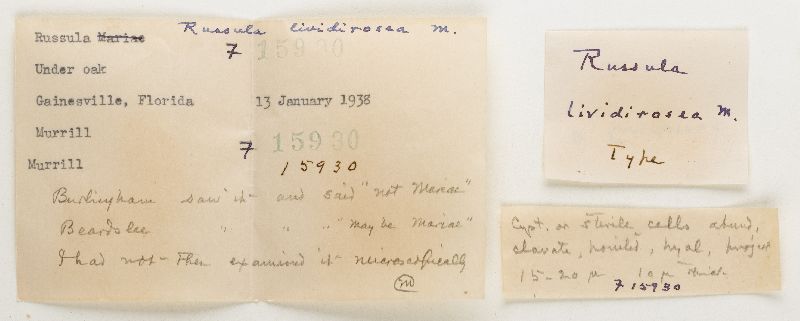 Russula ~~Mariae~~ Russula lividirosea M.
7 15930
Under oak
Gainesville, Florida 13 January 1938
Murrill
7 15930
Murrill 15930
Burlingham saw it and said "not Mariae"
Beardslee " " " "may be Mariae"
I had not then examined it microscopically
M
Russula
lividirosea M.
Type
Cyst. or sterile cells abund,
clavate, pointed, hyal, project
15-20 µ 10 µ thick.
7 15930